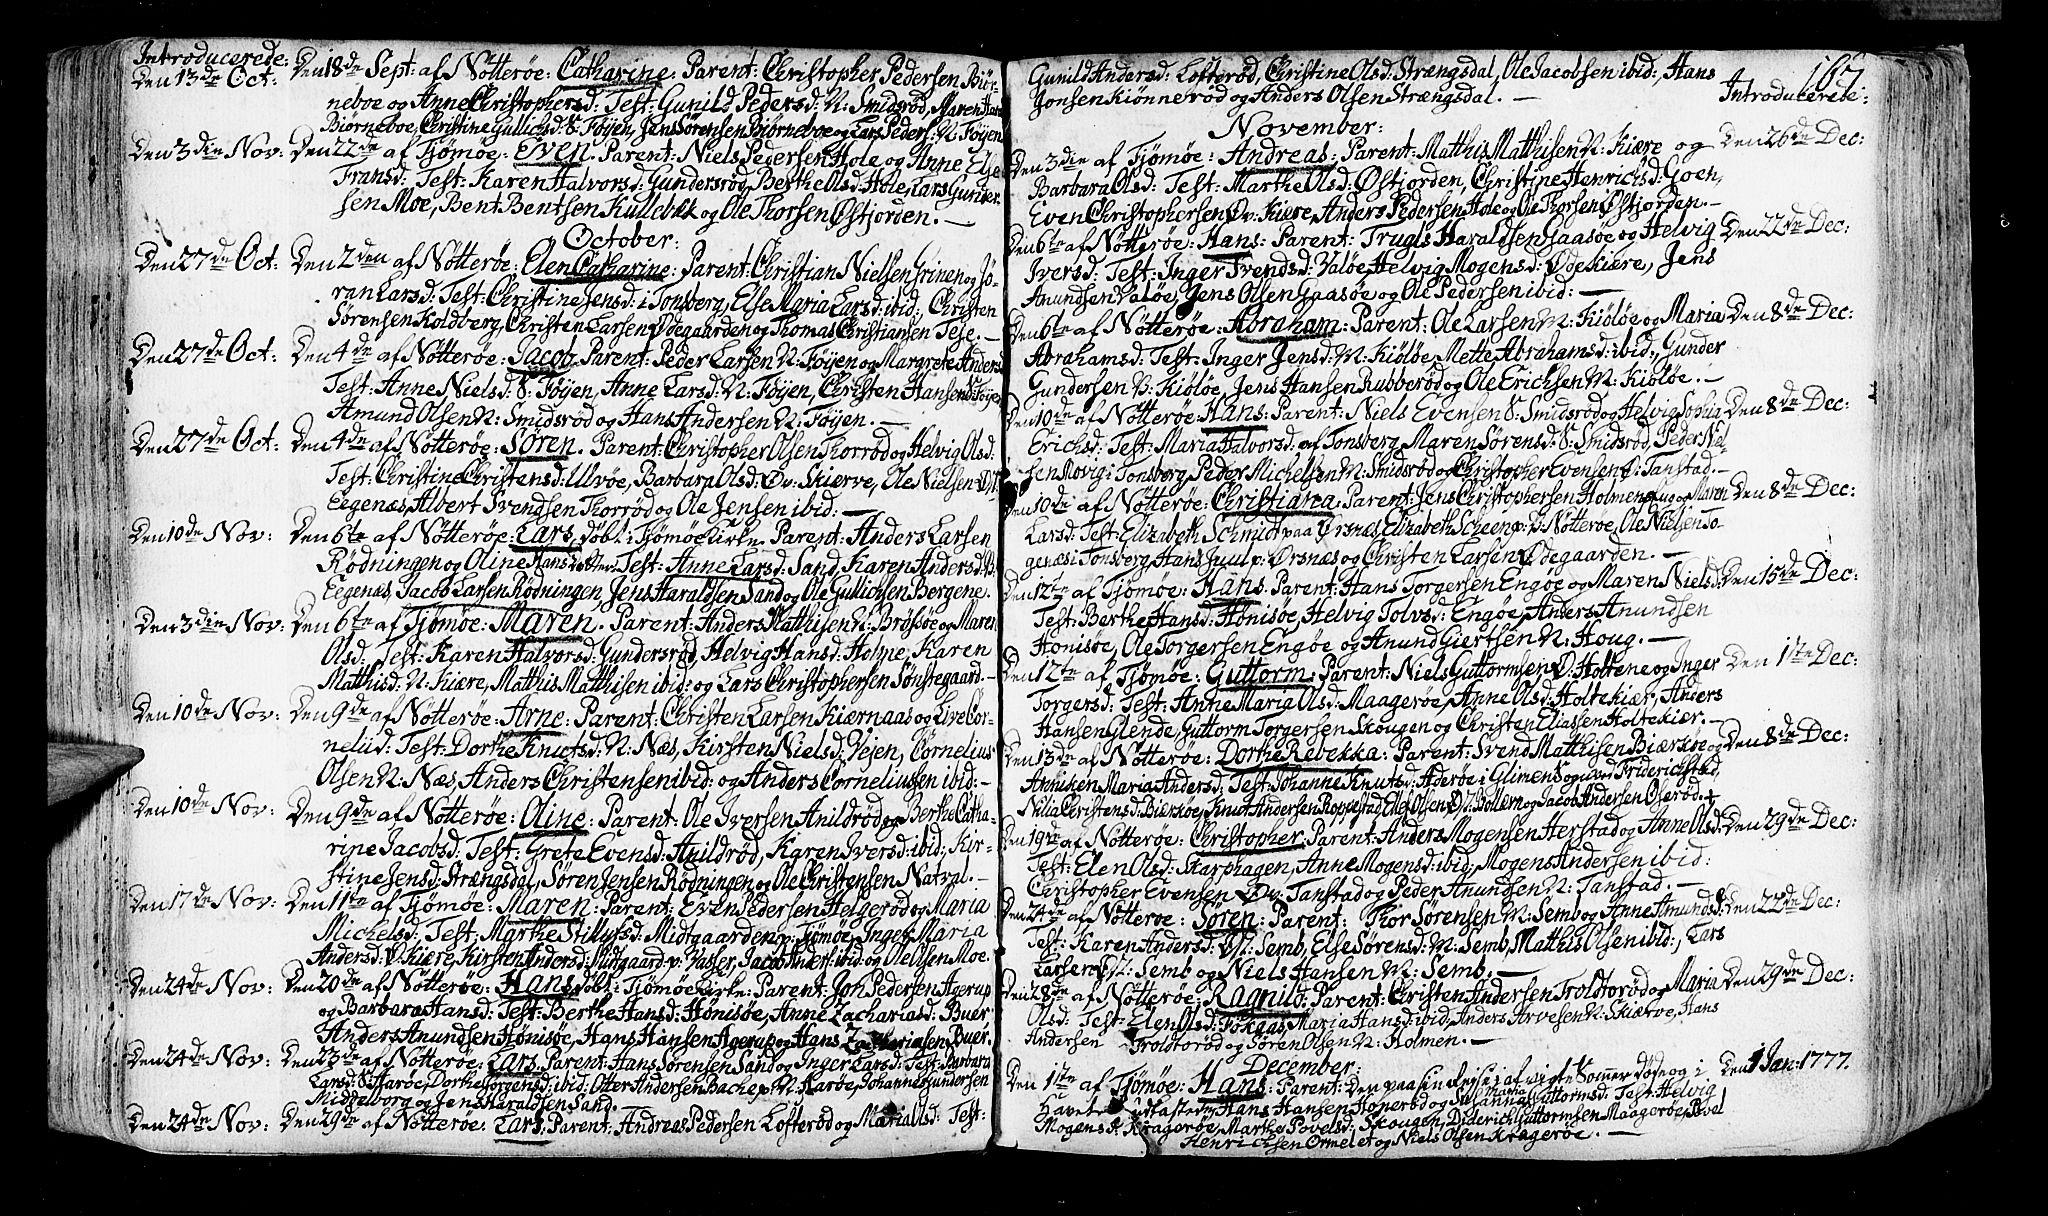 Introducerede:
Den 13de Oct: Den 18de Sept: af Nötterøe: Catharine: Parent: Christopher Pedersen Biör-
neboe og Anne Christophersd: Test: Gunild Pedersd: N: Smidsrød, Maren Hans
Biørneboe, Christine Gullichsd: S: Föyen, Jens Sörensen Biørneboe og Lars Peders: N: Föyen
Den 3die Nov: Den 22de af Tjömöe: Even. Parent: Niels Pedersen Hole og Anne Else
Fransd: Test: Karen Halvorsd: Gundersrød, Berthe Olsd: Hole, Lars Gunder-
sen Moe, Bent Bentsen Kullebek og Ole Thorsen Østjorden. —
October:
Den 27de Oct: Den 2den af Nötterøe: Elen Catharine: Parent: Christian Nielsen Grinen og Jö-
ran Larsd: Test: Christine Jensd: i Tonsberg, Else Maria Larsd: ibid:, Christen
Sörensen Koldberg, Christen Larsen Ødegaarden og Thomas Christiansen Teje. —
Den 27de Oct: Den 4de af Nötterøe: Jacob. Parent: Peder Larsen N: Föyen og Margrete Anders
Test: Anne Nielsd: S: Föyen, Anne Larsd: N: Föyen, Christen Hansen S: Föyen
Amund Olsen N: Smidsrød og Hans Andersen N: Föyen. —
Den 27de Oct: Den 4de af Nötterøe: Sören. Parent: Christopher Olsen Thorrød og Helvig Olsd:
Test: Christine Christensd: Ulvöe, Barbara Olsd: Øv: Skierve, Ole Nielsen
Eegenæs, Albert Svendsen Thorrød og Ole Jensen ibid: —
Den 10de Nov: Den 6te af Nötterøe: Lars, döbt i Tjömöe Kirke. Parent: Anders Larsen
Rödningen og Oline Hansdatter. Test: Anne Larsd: Sand, Karen Andersd:
Eegenæs, Jacob Larsen Rödningen, Jens Haraldsen Sand og Ole Gullichsen Bergene.
Den 3die Nov: Den 6te af Tjömöe: Maren. Parent: Anders Mathisen N: Brøtsöe og Maren
Olsd: Test: Karen Halvorsd: Gundersrød, Helvig Hansd: Holme, Karen
Mathisd: N: Kiære, Matthis Matthisen ibid: og Lars Christophersen Sönstegaard. —
Den 10de Nov: Den 9de af Nötterøe: Arne: Parent: Christen Larsen Kiærnaas og Live Cor-
neliid: Test: Dorthe Knutsd: N: Næs, Kirsten Nielsd: Vejen, Cornelius
Olsen N: Næs, Anders Christensen ibid: og Anders Corneliussen ibid: —
Den 10de Nov: Den 9de af Nötterøe: Oline: Parent: Ole Iversen Anildrød og Berthe Catha-
rine Jacobsd: Test: Grete Evensd: Anildrød, Karen Iversd: ibid:, Kir-
stine Jensd: Strængsdal, Sören Jensen Rödningen og Ole Christensen Natval. —
Den 17de Nov: Den 11te af Tjömöe: Maren: Parent: Even Pedersen Helgerød og Maria
Michelsd: Test: Marthe Stillufsd: Midtgaarden p: Tjömöe, Inger Maria
Andersd: Ø: Kiære, Kirsten Andersd: Midtgaard p: Vasser, Jacob Anders: ibid og Ole Olsen Moe.
Den 24de Nov: Den 20de af Nötterøe: Hans, döbt i Tjömöe Kirke: Parent: Jon Pedersen Agerup
og Barbara Hansd: Test: Berthe Hansd: Hönisöe, Anne Zachariasd: Buer
Anders Anundsen Hönisöe, Hans Hansen Agerup og Hans Zachariasen Buer.
Den 24de Nov: Den 23de af Nötterøe: Lars. Parent: Hans Sörensen Sand og Inger Larsd: Test: Barbara
Larsd: S: Haröe, Dorthe Torgersd: ibid: Otter Andersen Bache p: N: Haröe, Johannes Gundersen
Middelborg og Jens Haraldsen Sand. —
Den 24de Nov: Den 29de af Nötterøe: Lars. Parent: Andreas Pedersen Lofterød og Maria Olsd: Test:
167
Gunild Andersd: Lofterød, Christine Olsd: Strængsdal, Ole Jacobsen ibid:, Hans
Jonsen Kiönnerød og Anders Olsen Strængsdal. — Introducerede:
November:
Den 3die af Tjömöe: Andreas: Parent: Matthis Matthisen N: Kiære og Den 26de Dec:
Barbara Olsd: Test: Marthe Olsd: Østjorden, Christine Henrichsd: Goen,
Even Christophersen Øv: Kiære, Anders Pedersen Hole og Ole Thorsen Østjorden. —
Den 6te af Nötterøe: Hans: Parent: Trugls Haraldsen Gaasöe og Helvig Den 22de Dec:
Iversd: Test: Inger Svendsd: Valöe, Helvig Mogensd: Ødekiære, Jens
Anundsen Valöe, Jens Olsen Gaasöe og Ole Pedersen ibid: —
Den 6te af Nötterøe: Abraham: Parent: Ole Larsen N: Kiölöe og Maria Den 8de Dec:
Abrahamsd: Test: Inger Jensd: N: Kiölöe, Mette Abrahamsd: ibid:, Gunder
Gundersen N: Kiölöe, Jens Hansen Rubberød og Ole Erichsen N: Kiölöe. —
Den 10de af Nötterøe: Hans: Parent: Niels Evensen S: Smidsrød og Helvig Sophia Den 8de Dec:
Erichsd: Test: Maria Halvorsd: af Tonsberg, Maren Sörensd: S: Smidsrød, Peder Niel-
sen Movig i Tonsberg, Peder Michelsen N: Smidsrød og Christopher Evensen Ø: Tanstad. —
Den 10de af Nötterøe: Christiana. Parent: Jens Christophersen Holmenskug og Maren Den 8de Dec:
Larsd: Test: Elizabeth Schmidt paa Ørsnæs, Elizabeth Scheen p: Nötterøe, Ole Nielsen To-
genæs i Tonsberg, Hans Juul p: Ørsnæs og Christen Larsen Ødegaarden. —
Den 12te af Tjömöe: Hans. Parent: Hans Torgersen Engöe og Maren Nielsd: Den 15de Dec:
Test: Berthe Hansd: Hönisöe, Helvig Tolvsd: Engöe, Anders Anundsen
Hönisöe, Ole Torgersen Engöe og Anund Giertsen N: Houg. —
Den 12te af Tjömöe: Guttorm: Parent: Niels Guttormsen Ø: Holtene og Inger Den 1ste Dec:
Torgersd: Test: Anne Maria Olsd: Maagerøe, Anne Olsd: Holtekiær, Anders
Hansen Glende, Guttorm Torgersen Skougen og Christen Eliassen Holtekier. —
Den 13de af Nötterøe: Dorthe Rebekka: Parent: Svend Matthisen Bierköe og Den 8de Dec:
Anniken Maria Andersd: Test: Johanne Knutsd: Aderöe i Glimens Sogn ved Friderichstad,
Nilia Christensd: Bierköe, Knut Andersen Roppestad, Ole Olsen Ø: Bollern og Jacob Andersen Oserød. +
Den 19de af Nötterøe: Christopher. Parent: Anders Mogensen Herstad og Anne Olsd: Den 29de Dec:
Test: Elen Olsd: Skarphagen, Anne Mogensd: ibid:, Mogens Andersen ibid:
Christopher Evensen Øv: Tanstad og Peder Anundsen N: Tanstad. —
Den 24de af Nötterøe: Sören: Parent: Thor Sörensen N: Semb og Anne Amundsd: Den 22de Dec:
Test: Karen Andersd: Semb, Else Sörensd: N: Semb, Matthis Olsen ibid:, Lars
Larsen Semb og Niels Hansen N: Semb. —
Den 28de af Nötterøe: Ragnild: Parent: Christen Andersen Troldtorød og Maria Den 29de Dec:
Olsd: Test: Elen Olsd: Fokaas, Maria Hansd: ibid, Anders Torvesen N: Skierve, Hans
Andersen Troldtorød og Sören Olsen N: Holmen. —
December:
Den 1te af Tjömöe: Hans: Parent: Den paa sin Rejse i afvigte Sommer döde og i Den 1 Jan: 1777.
Havnet udkastede Hans Hansen Honerød og Susanna Maria Guttormsd: Test: Helvig
Mogensd: Kragerøe, Marthe Povelsd: Skougen, Diderich Guttormsen Maagerøe, Povel
Henrichsen Ormelet og Niels Olsen Kragerøe. —